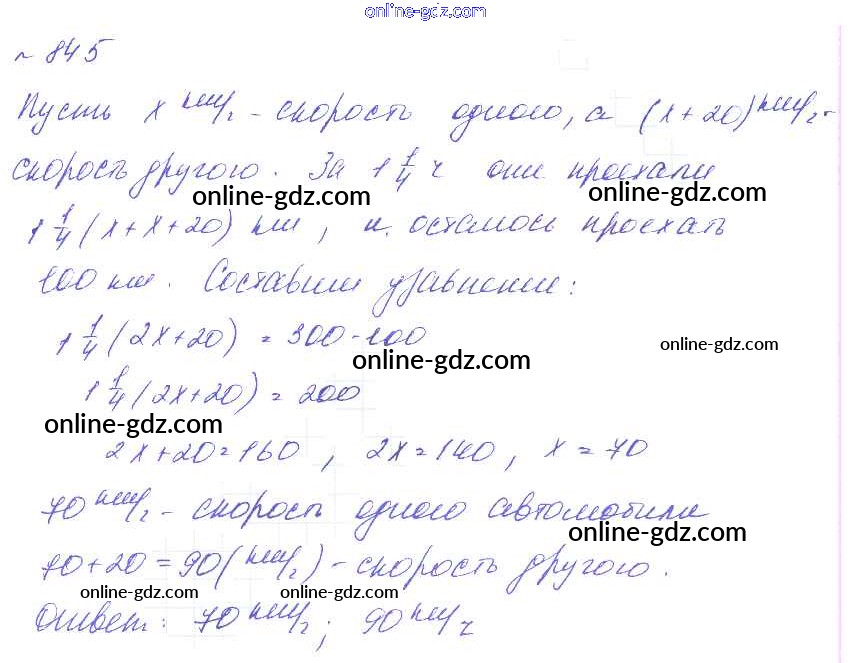 online-gdz.com
№ 845
Пусть x км/ч - скорость одного, а (x+20) км/ч -
скорость другого. За 1 1/4 ч они проехали
online-gdz.com online-gdz.com
1 1/4 (x+x+20) км, и осталось проехать
100 км. Составим уравнение:
1 1/4 (2x+20) = 300-100
online-gdz.com online-gdz.com
1 1/4 (2x+20) = 200
online-gdz.com
2x+20=160, 2x=140, x=70
70 км/ч - скорость одного автомобиля
online-gdz.com
70+20=90(км/ч) - скорость другого.
online-gdz.com online-gdz.com
Ответ: 70 км/ч; 90 км/ч